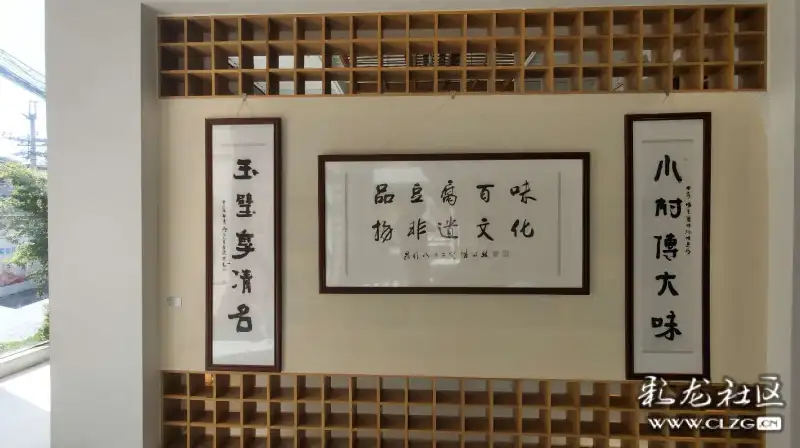 小村傳大味
品豆腐百味
扬非遗文化
玉壁享清名
彩龙社区
WWW.CLZG.CN